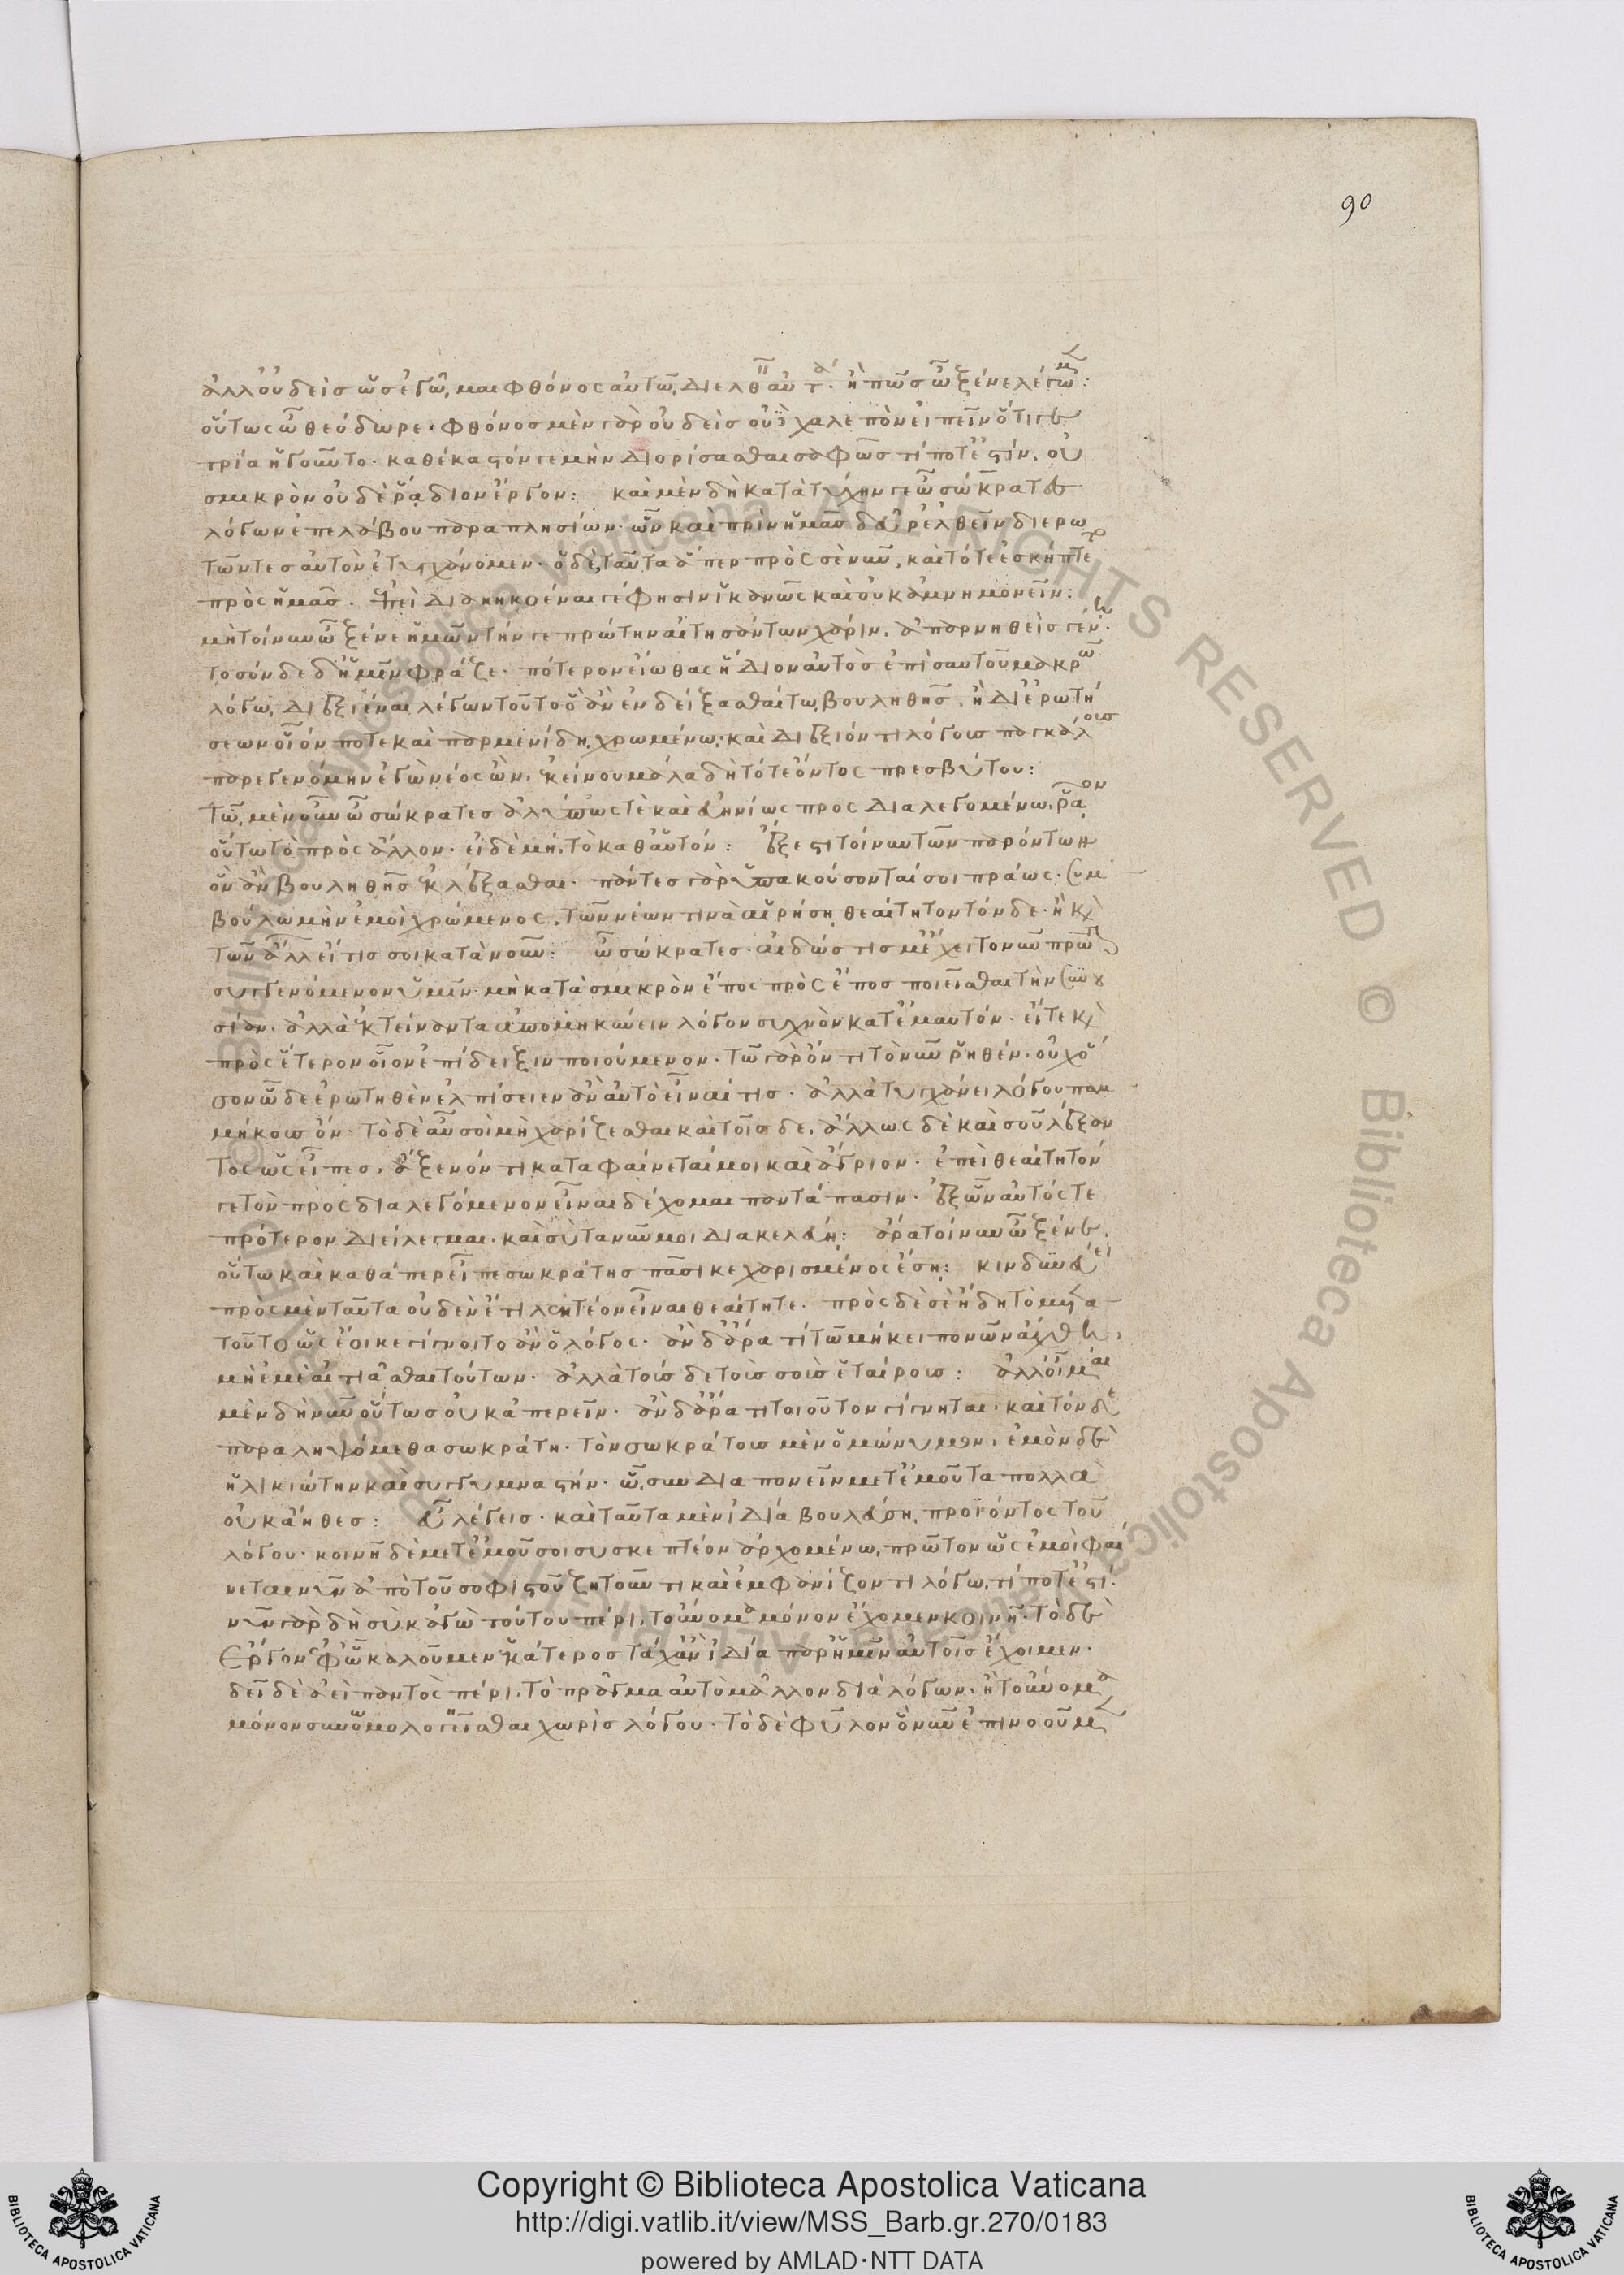 90
ἀλλ' οὐδεὶς ὡς ἐγῶμαι φθόνος αὐτῶ, διελθεῖν αὐτά. ἢ πῶς ὦ ξένε λέγωμεν:
οὕτως ὦ θεόδωρε· φθόνος μὲν γὰρ οὐδεὶς οὐδὲ χαλεπὸν εἰπεῖν ὅτι γε
τρία ἡγοῦντο· καθ' ἕκαστόν γε μὴν διορίσασθαι σαφῶς τί ποτ' ἐστίν, οὐ
σμικρὸν οὐδὲ ῥάδιον ἔργον: καὶ μὲν δὴ κατὰ τύχην γε ὦ σώκρατες
λόγων ἐπελάβου παραπλησίων· ὧν καὶ πρὶν ἡμᾶς δεῦρ' ἐλθεῖν διερω
τῶντες αὐτὸν ἐτυγχάνομεν· ὁ δὲ, ταῦτα ἅπερ πρὸς σὲ νῦν, καὶ τότε ἐσκήπτετο
πρὸς ἡμᾶς. ἐπεὶ διακηκοέναι γέ φησιν ἱκανῶς καὶ οὐκ ἀμνημονεῖν:
μὴ τοίνυν ὦ ξένε ἡμῶν τήν γε πρώτην αἰτησάντων χάριν, ἀπαρνηθεὶς γένη·
τοσόνδε δ' ἡμῖν φράζε· πότερον εἴωθας ἥδιον αὐτὸς ἐπὶ σαυτοῦ μακρῶ
λόγω, διεξιέναι λέγων τοῦτο ὃ ἂν ἐνδείξασθαί τω, βουληθῆς, ἢ δι' ἐρωτή
σεων οἷόν ποτε καὶ παρμενίδη, χρωμένω, καὶ διεξιόντι λόγους παγκάλους
παρεγενόμην ἐγὼ νέος ὢν, ἐκείνου μάλα δὴ τότε ὄντος πρεσβύτου:
τῶ, μὲν οὖν ὦ σώκρατες ἀλύπως τὲ καὶ εὐηνίως προσδιαλεγομένω, ῥᾶον
οὕτω τὸ πρὸς ἄλλον· εἰ δὲ μή, τὸ καθ' αὑτόν: ἔξεστι τοίνυν τῶν παρόντων
ὃν ἂν βουληθῆς ἐκλέξασθαι· πάντες γὰρ ὑπακούσονταί σοι πράως· συμ
βούλω μὴν ἐμοὶ χρώμενος, τῶν νέων τινὰ αἱρήση, θεαίτητον τόνδε· ἢ καὶ
τῶν ἄλλ' εἴ τίς σοι κατὰ νοῦν: ὦ σώκρατες· αἰδώς τίς μ' ἔχει τὸ νῦν πρῶτον
συγγενόμενον ὑμῖν· μὴ κατὰ σμικρὸν ἔπος πρὸς ἔπος ποιεῖσθαι τὴν συνου
σίαν. ἀλλὰ ἐκτείναντα ἀπομηκύνειν λόγον συχνὸν κατ' ἐμαυτόν· εἴτε καὶ
πρὸς ἕτερον οἷον ἐπίδειξιν ποιούμενον· τῶ γὰρ ὄντι τὸ νῦν ῥηθέν, οὐχ ὅ
σον ὧδε ἐρωτηθὲν ἐλπίσειεν ἂν αὐτὸ εἶναί τις· ἀλλὰ τυγχάνει λόγου παμ
μήκους ὄν· τὸ δὲ αὖ σοὶ μὴ χαρίζεσθαι καὶ τοῖσδε, ἄλλως δὲ καὶ σοῦ λέξαν
τος ὡς εἶπες, ἄξενόν τι καταφαίνεταί μοι καὶ ἄγριον· ἐπεὶ θεαίτητόν
γε τὸν προσδιαλεγόμενον εἶναι δέχομαι παντάπασιν· ἐξ ὧν αὐτός τε
πρότερον διείλεγμαι. καὶ σὺ τανῦν μοι διακελεύη: ὅρα τοίνυν ὦ ξένε.
οὕτω καὶ καθάπερ εἶπε σωκράτης πᾶσι κεχαρισμένος ἔση: κινδυνεύει
πρὸς μὲν ταῦτα οὐδὲν ἔτι λεκτέον εἶναι θεαίτητε· πρὸς δὲ σὲ ἤδη τὸ μετὰ
τοῦτο ὡς ἔοικε γίγνοιτο ἂν ὁ λόγος· ἂν δ' ἄρα τί τῶ μήκει πονῶν ἄχθη,
μὴ ἐμὲ αἰτιᾶσθαι τούτων· ἀλλὰ τούσδε τοὺς σοὺς ἑταίρους: ἀλλ' οἶμαι
μὲν δὴ νῦν οὕτως οὐκ ἀπερεῖν· ἂν δ' ἄρα τι τοιοῦτον γίγνηται· καὶ τόνδε
παραληψόμεθα σωκράτη· τὸν σωκράτους μὲν ὁμώνυμον, ἐμὸν δὲ
ἡλικιώτην καὶ συγγυμναστήν· ὧ, συνδιαπονεῖν μετ' ἐμοῦ τὰ πολλὰ
οὐκ ἄηθες: εὖ λέγεις· καὶ ταῦτα μὲν ἰδία βουλεύση, προϊόντος τοῦ
λόγου· κοινῆ δὲ μετ' ἐμοῦ σοι συσκεπτέον ἀρχομένω, πρῶτον ὡς ἐμοὶ φαί
νεται νῦν ἀπὸ τοῦ σοφιστοῦ ζητοῦντι καὶ ἐμφανίζοντι λόγω, τί ποτ' ἔστι·
νῦν γὰρ δὴ σὺ κἀγὼ τούτου πέρι, τοὔνομα μόνον ἔχομεν κοινῆ· τὸ δὲ
ἔργον ἐφ' ὧ καλοῦμεν ἑκάτερος τάχ' ἂν ἰδία παρ' ἡμῖν αὐτοῖς ἔχοιμεν·
δεῖ δὲ ἀεὶ παντὸς πέρι, τὸ πρᾶγμα αὐτὸ μᾶλλον διὰ λόγων, ἢ τοὔνομα
μόνον συνωμολογεῖσθαι χωρὶς λόγου· τὸ δὲ φῦλον ὃ νῦν ἐπινοοῦμεν
Copyright © Biblioteca Apostolica Vaticana
http://digi.vatlib.it/view/MSS_Barb.gr.270/0183
powered by AMLAD·NTT DATA